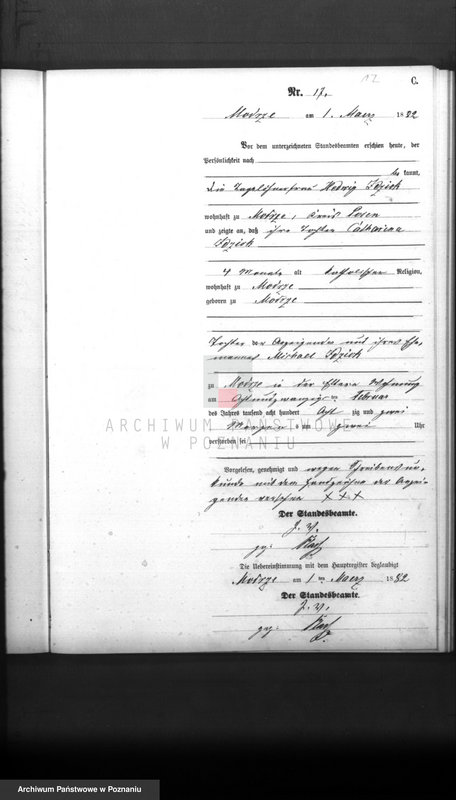 12
C.
Nr. 17.
Modrze am 1. Maerz 1882
Vor dem unterzeichneten Standesbeamten erschien heute, der
Persönlichkeit nach
be kannt,
die Tagelöhnerfrau Hedwig
wohnhaft zu Modrze, Kreis Posen
und zeigte an, daß ihre Tochter Catharina
4 Monate alt katholischer Religion,
wohnhaft zu Modrze
geboren zu Modrze
Tochter der Anzeigenden und ihres Ehe-
mannes Michael
zu Modrze in der Eltern Wohnung
am Achtundzwanzig ten Februar
des Jahres tausend acht hundert Acht zig und zwei
Morgens um zwei Uhr
verstorben sei
Vorgelesen, genehmigt und wegen Schreibensun-
kunde mit dem Handzeichen der Anzei-
genden versehen x x x
Der Standesbeamte.
J. V.
gez.
Die Uebereinstimmung mit dem Hauptregister beglaubigt
Modrze am 1 ten Maerz 1882
Der Standesbeamte.
J. V.
gez.
ARCHIWUM PAŃSTWOWE
W POZNANIU
Archiwum Państwowe w Poznaniu